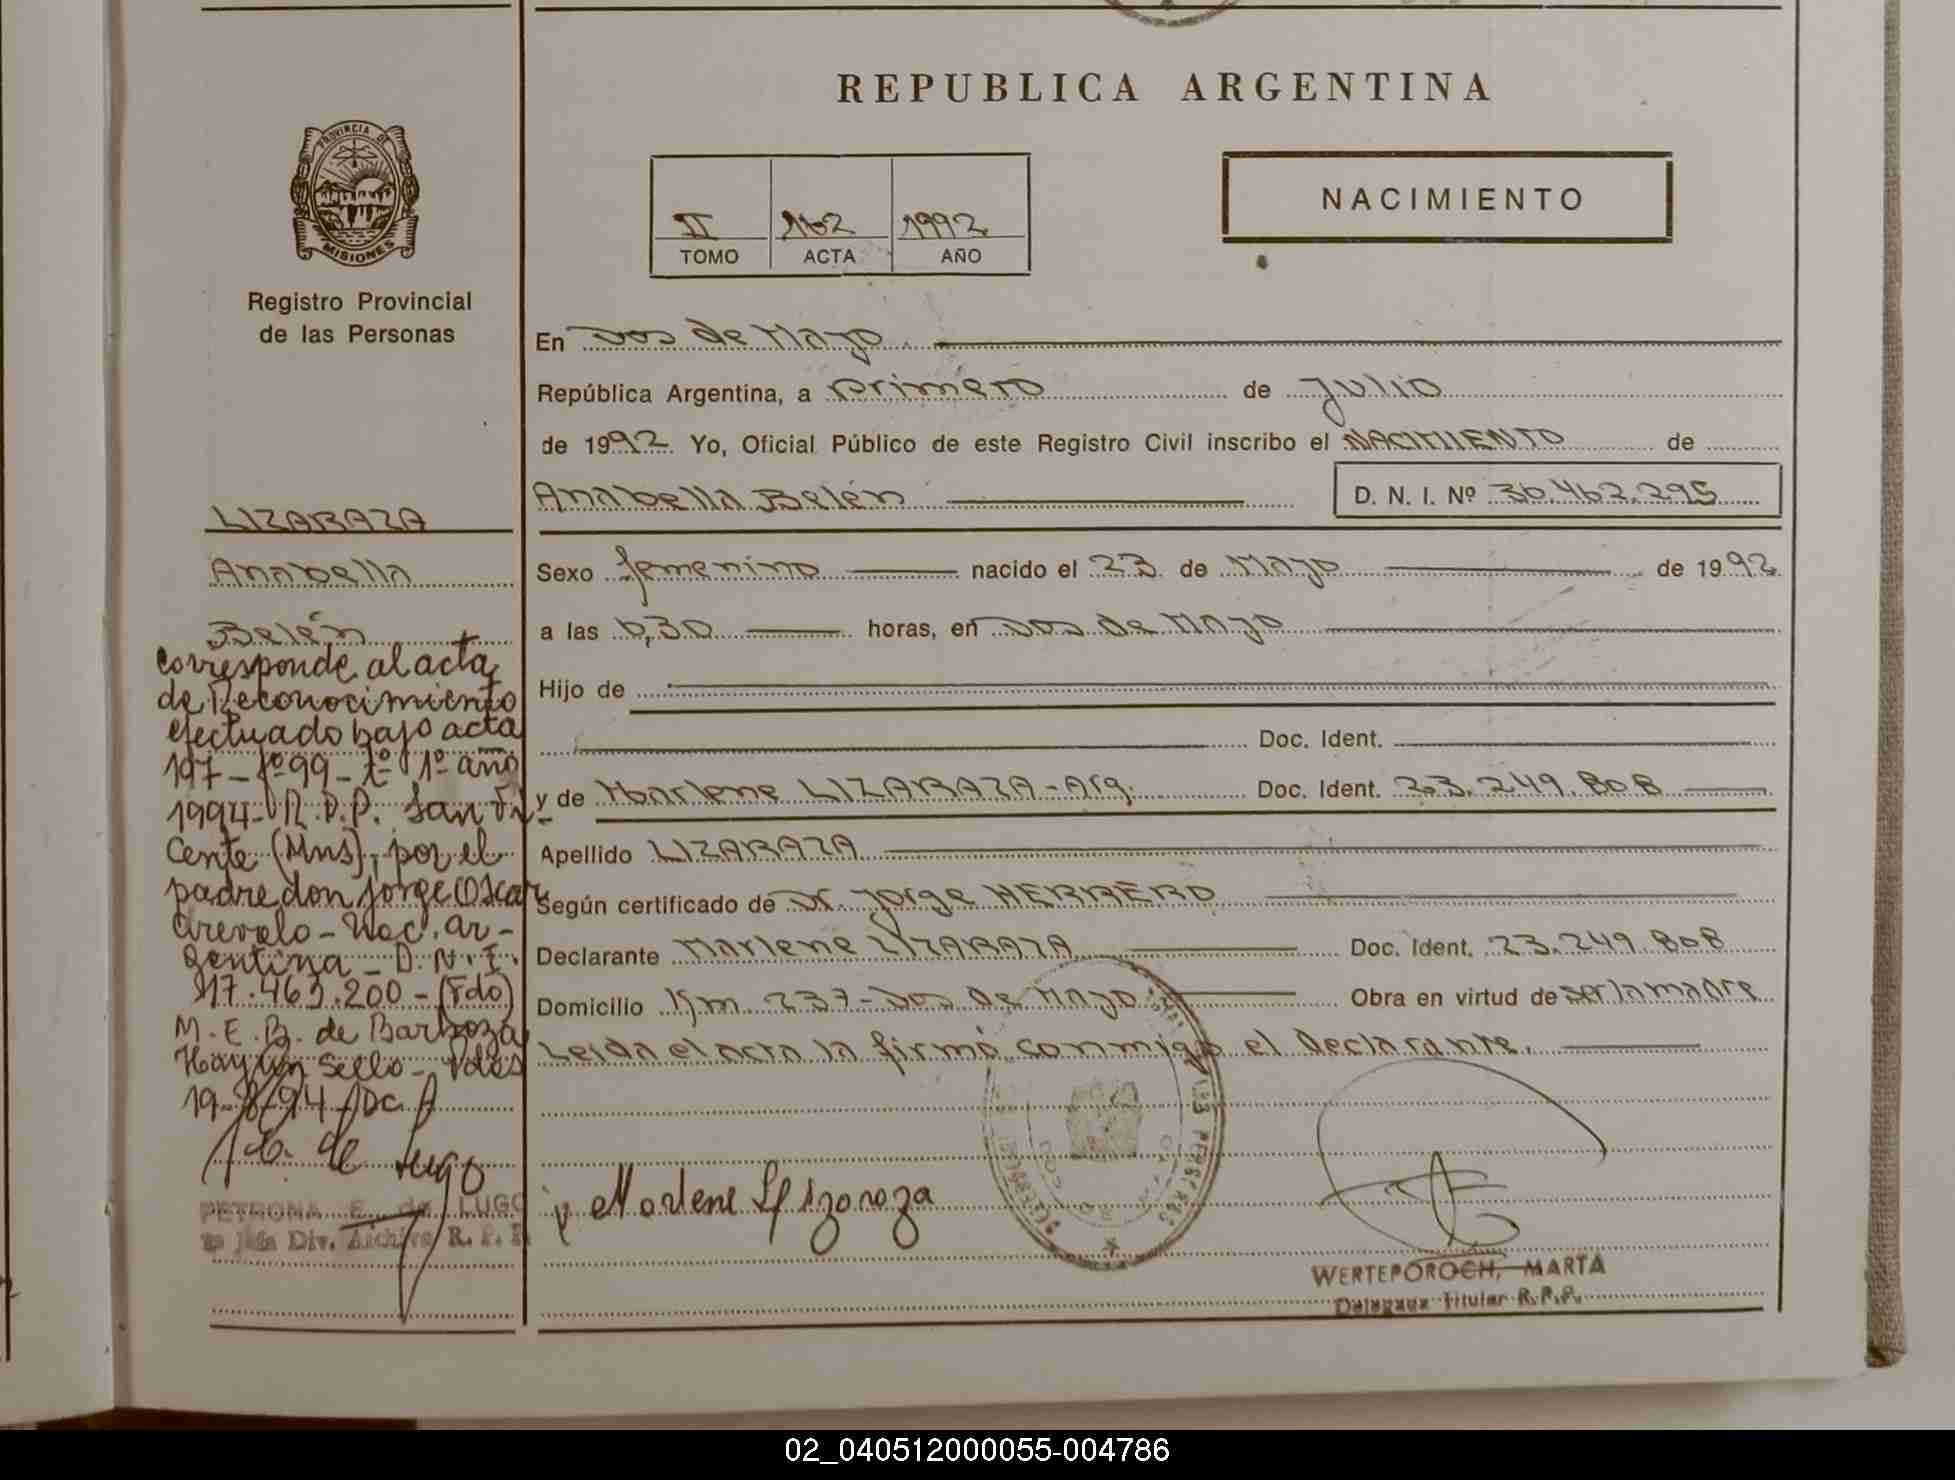 REPUBLICA ARGENTINA
PROVINCIA DE
MISIONES
Registro Provincial
de las Personas
II 162 1992
TOMO ACTA AÑO
NACIMIENTO
En Dos de Mayo
República Argentina, a primero de Julio
de 1992 Yo, Oficial Público de este Registro Civil inscribo el NACIMIENTO de
Anabella Belén D. N. I. Nº 36.462.295
Sexo femenino nacido el 23 de Mayo de 1992
a las 6,30 horas, en Dos de Mayo
Hijo de
Doc. Ident.
y de Marlene LIZARAZA - Arg. Doc. Ident. 23.249.808
Apellido LIZARAZA
Según certificado de Dr. Jorge HERRERO
Declarante Marlene LIZARAZA Doc. Ident. 23.249.808
Domicilio Km. 237 - Dos de Mayo Obra en virtud de ser la madre
Leida el acta la firmó conmigo el declarante.
LIZARAZA
Anabella
Belén
Corresponde al acta
de Reconocimiento
efectuado bajo acta
197 - fº 99 - tº 1º año
1994 - R.P.P. San Vi-
cente (Mns), por el
padre don Jorge Oscar
Arevalo - Nac. Ar-
gentina - D.N.I.
17.463.200 - (Fdo)
M.E.B. de Barboza
Hay un sello - Pdas
19-8-94
de Lugo
PETRONA E. de LUGO
Jefa Div. Archivo R. P. P.
Marlene Lizaraza
WERTEPOROCH, MARTA
Delegada Titular R.P.P.
02_040512000055-004786